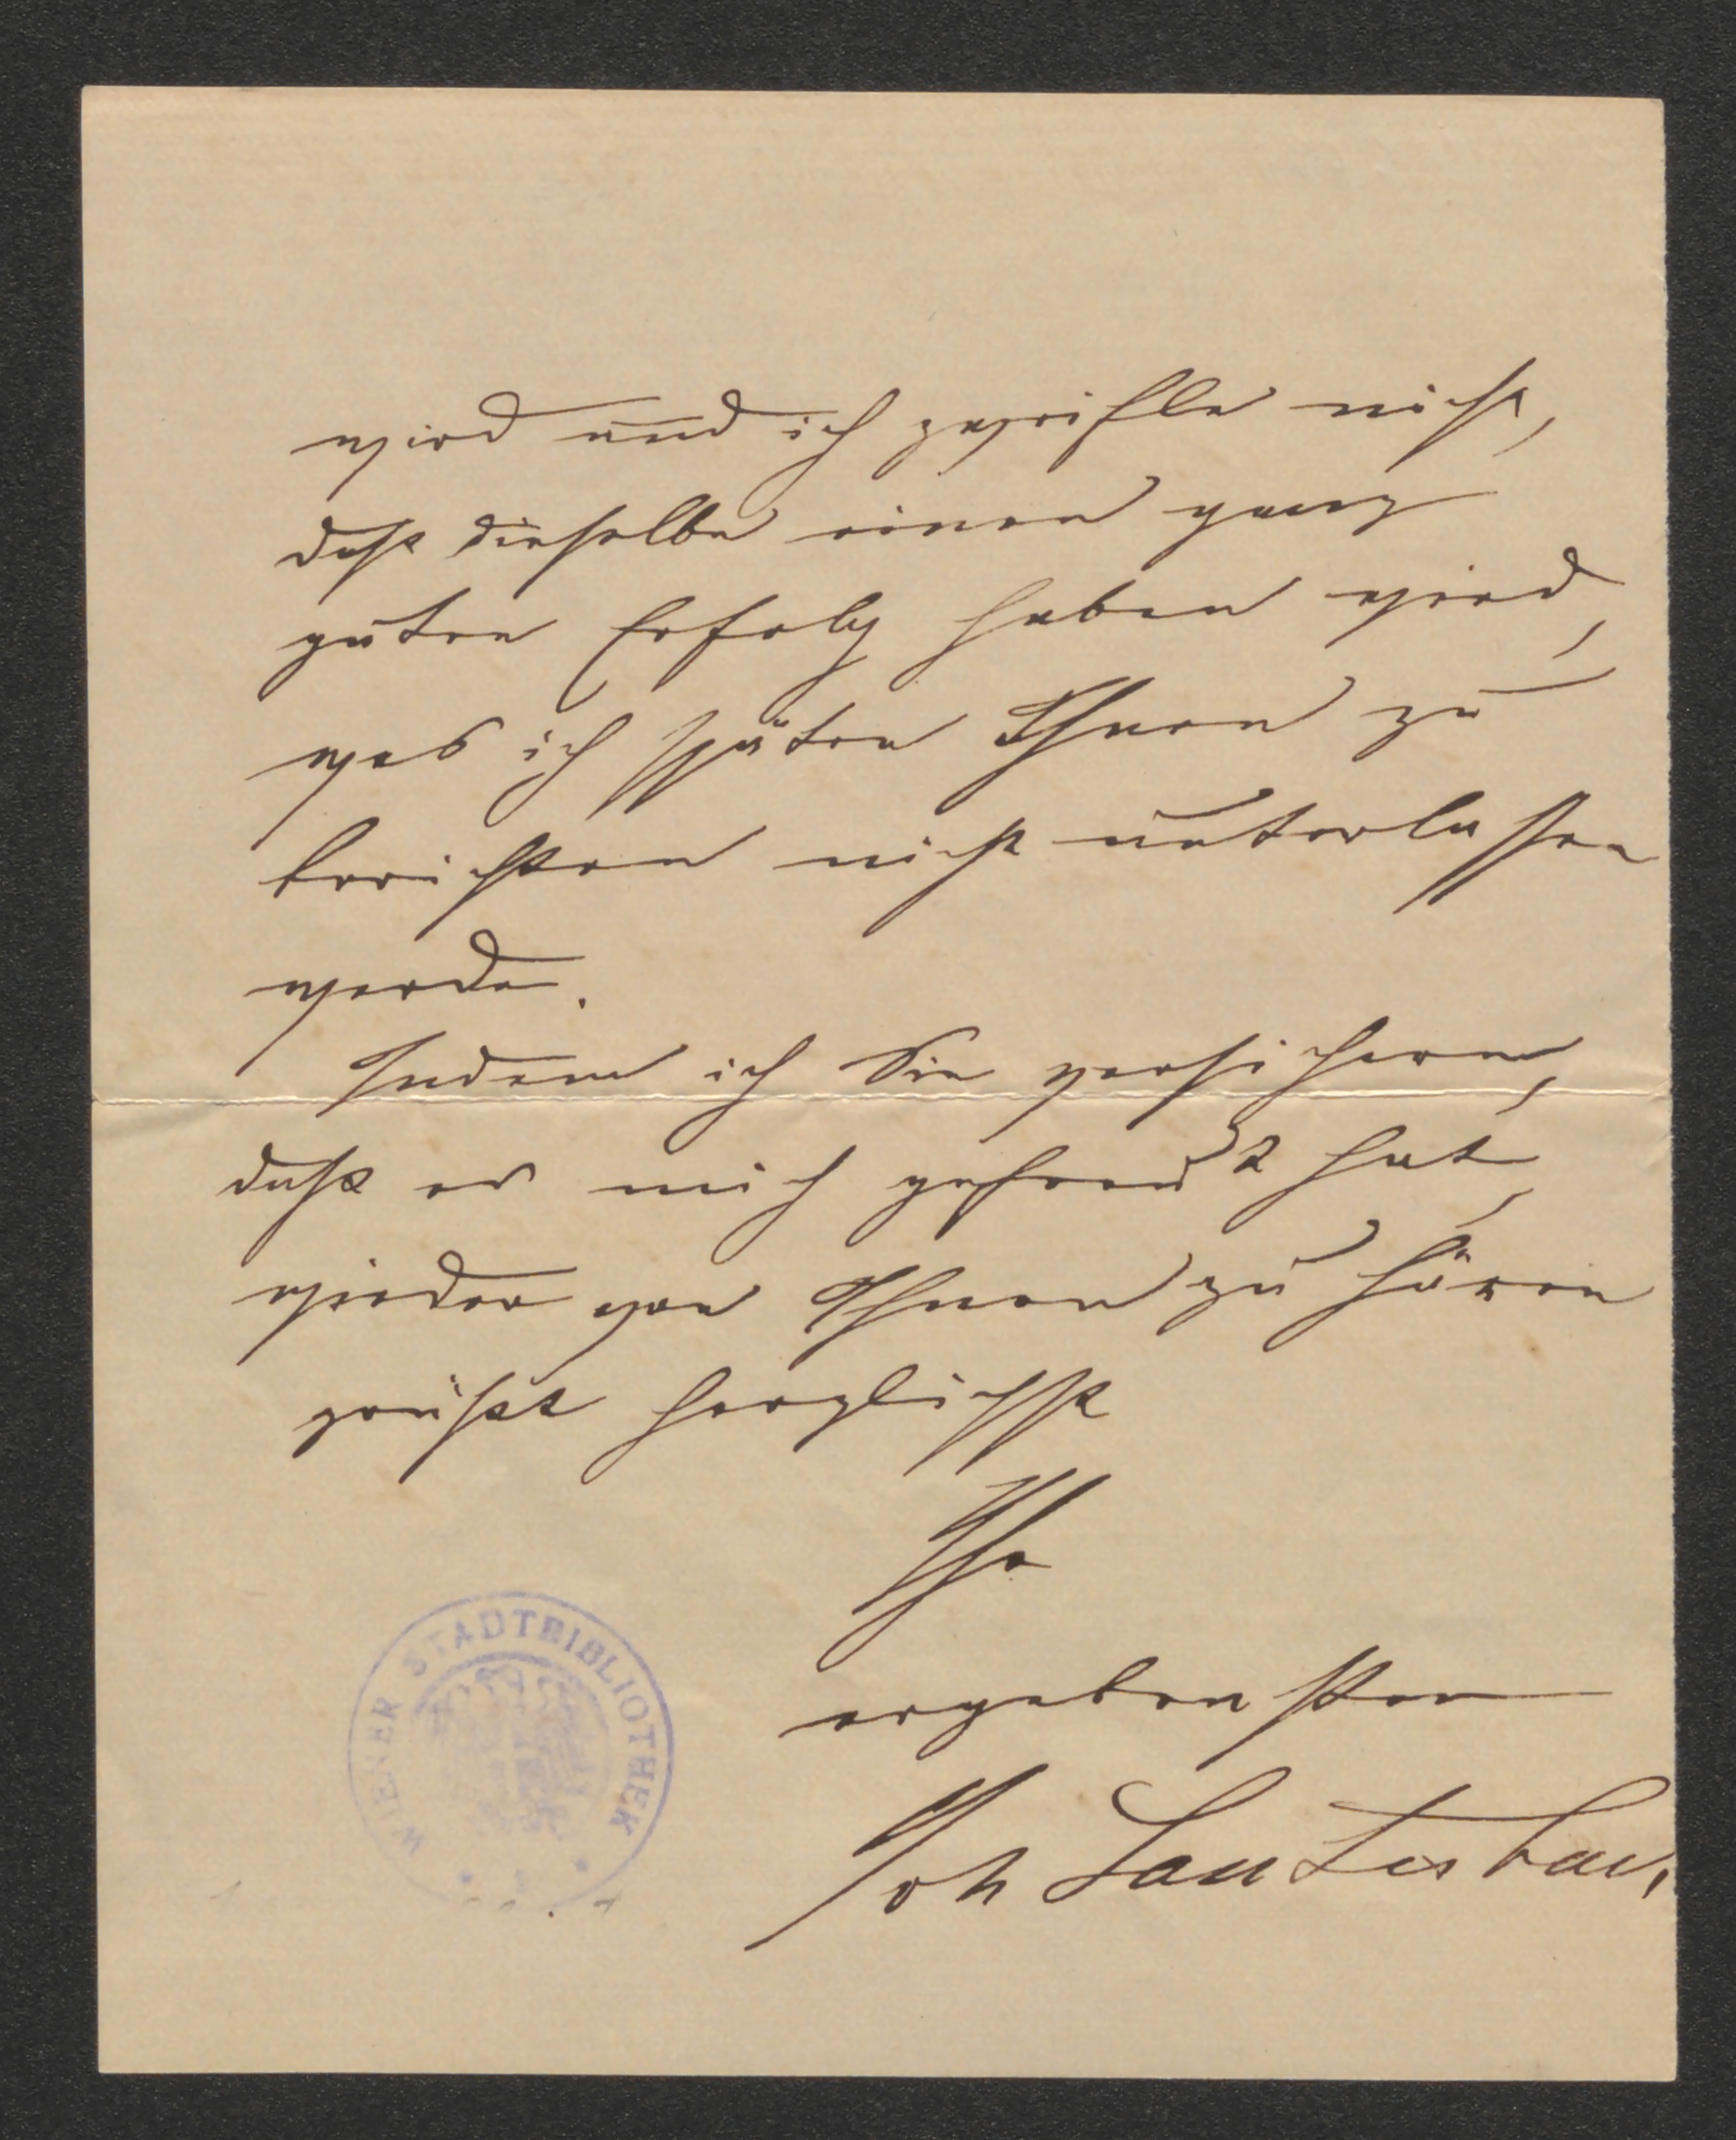 wird und ich zweifle nicht,
daß dieselbe einen ganz
guten Erfolg haben wird,
was ich später Ihnen zu
berichten nicht unterlassen
werde.
Indem ich Sie versichere,
daß es mich gefreut hat,
wieder von Ihnen zu hören
grüßt herzlichst
Ihr
ergebenster
Joh
WIENER STADTBIBLIOTHEK